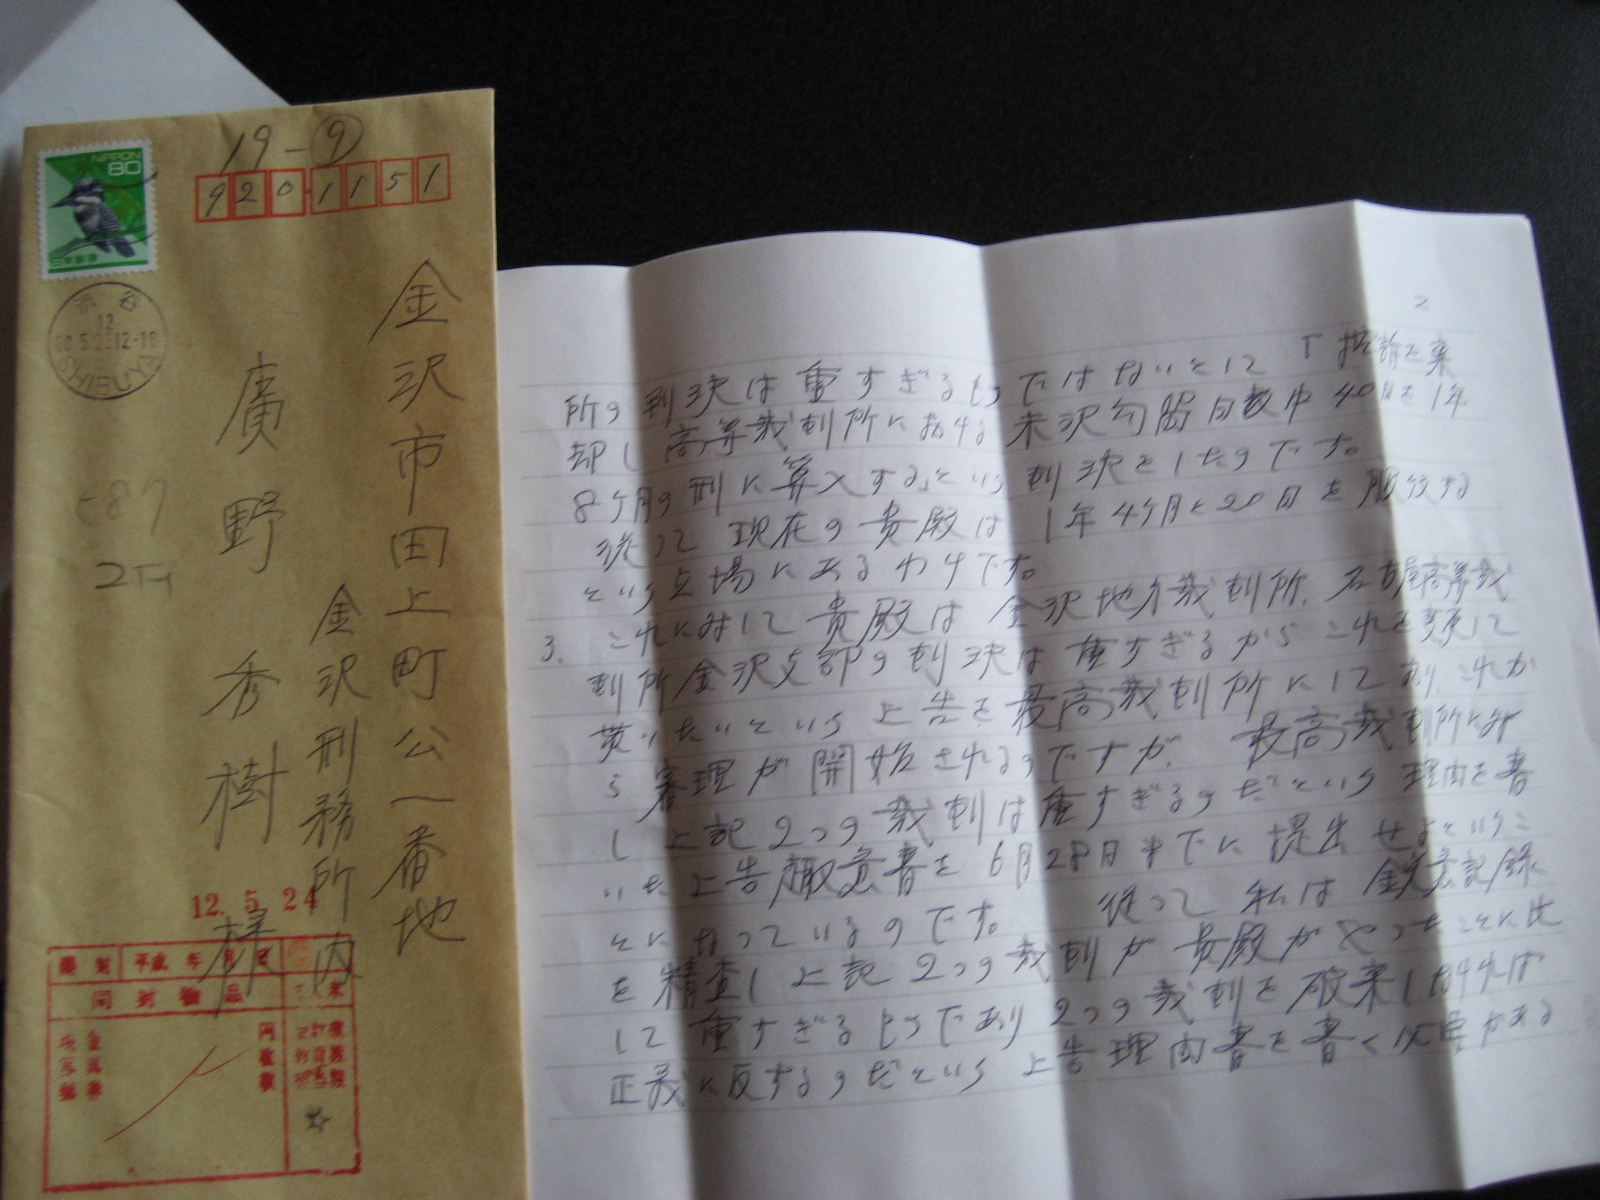 NIPPON
80
日本郵便
19-⑨
920-1151
金沢市田上町公一番地
金沢刑務所内
廣野秀樹様
渋谷
12
12-18
SHIBUYA
12.5.24
開封 平成 年 月 日
同封物品
現金 円
写真 枚
郵券 枚
2
所の判決は重すぎるものではないとして「控訴を棄
却し高等裁判所における未決勾留日数中40日を1年
8ケ月の刑に算入する」という判決をしたのです。
従って現在の貴殿は1年4ケ月と20日を服役する
という立場にあるわけです。
3. これに対して貴殿は金沢地方裁判所、名古屋高等裁
判所金沢支部の判決は重すぎるからこれを変更して
貰いたいという上告を最高裁判所にしており、これか
ら審理が開始されるのですが、最高裁判所に対
し上記2つの裁判は重すぎるのだという理由を書
いた上告趣意書を6月28日までに提出せよというこ
とになっているのです。 従って私は記録
を精査し上記2つの裁判が貴殿がやったことに比
して重すぎるものであり2つの裁判を破棄しなければ
正義に反するのだという上告理由書を書く必要がある